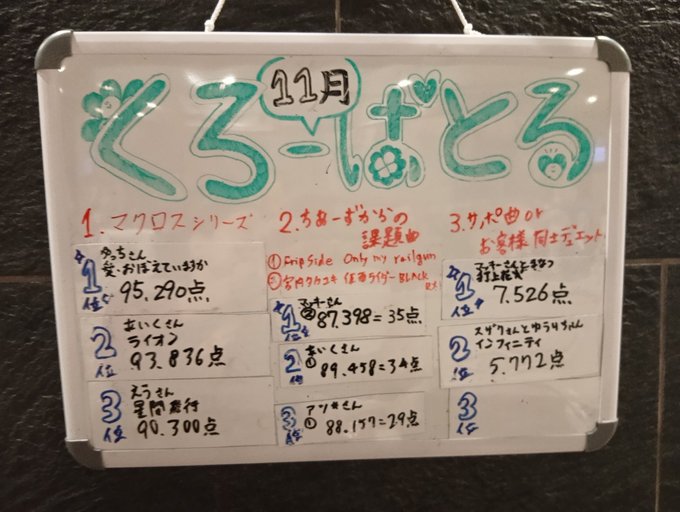 11月
くろーばとる
1. マクロスシリーズ
1位
ゆっちさん
愛・おぼえていますか
95.290点
2位
あいくさん
ライオン
93.836点
3位
えうさん
星間飛行
90.300点
2. ちあーずからの
課題曲
① Frip Side Only my railgun
② 宮内タカユキ 仮面ライダーBLACK
RX
1位
マッキーさん
② 87.398=35点
2位
あいくさん
① 89.458=34点
3位
アツキさん
① 88.157=29点
3. サボ曲or
お客様同士デュエット
1位
マッキーさんときなつ
打上花火
7.526点
2位
スザクさんとゆうりちゃん
インフィニティ
5.772点
3位